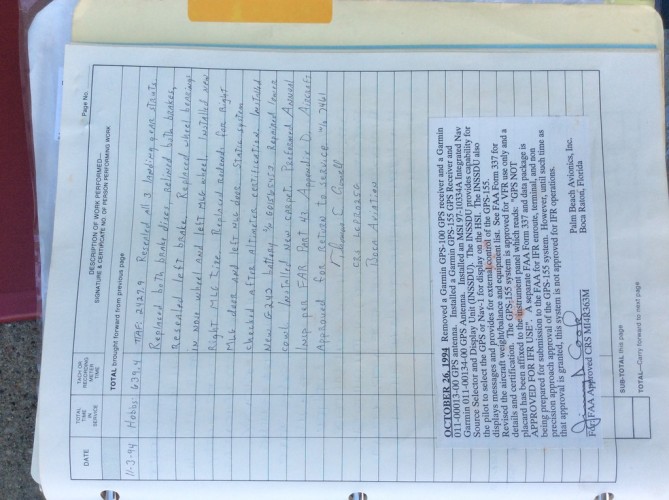 Page No.
DESCRIPTION OF WORK PERFORMED—
SIGNATURE & CERTIFICATE NO. OF PERSON PERFORMING WORK
DATE
TOTAL TIME IN SERVICE
TACH OR RECORDING METER TIME
TOTAL brought forward from previous page
11-3-94 Hobbs: 639.4 TTAF: 2429.9 Resealed all 3 landing gear struts.
Replaced both brake discs, relined both brakes,
Resealed left brake. Replaced wheel bearings
in nose wheel and left MLG wheel. Installed new
Right MLG tire. Replaced for Right
MLG door and left MLG door. Static system
Checked after altimeter certification. Installed
New G242 battery Repaired lower
cowl. Installed new carpet. Performed Annual
Insp per FAR Part 43 Appendix D. Aircraft
Approved for return to service
CRS
Aviation
OCTOBER 26, 1994 Removed a Garmin GPS-100 GPS receiver and a Garmin
011-00013-00 GPS antenna. Installed a Garmin GPS-155 GPS Receiver and
Garmin 011-00134-00 GPS Antenna. Installed an MSI 97-10334A Integrated Nav
Source Selector and Display Unit (INSSDU). The INSSDU provides capability for
the pilot to select the GPS or Nav-1 for display on the HSI. The INSSDU also
displays messages and provides for external control of the GPS-155.
Revised the aircraft weight/balance and equipment list. See FAA Form 337 for
details and certification. The GPS-155 system is approved for VFR use only and a
placard has been affixed to the instrument panel which reads: "GPS NOT
APPROVED FOR IFR USE". A separate FAA Form 337 and data package is
being prepared for submission to the FAA for IFR enroute, terminal, and non
precision approach approval of the GPS-155 system. However, until such time as
that approval is granted, this system is not approved for IFR operations.
Palm Beach Avionics, Inc.
For FAA Approved CRS M64R363M Boca Raton, Florida
SUB-TOTAL this page
TOTAL—Carry forward to next page